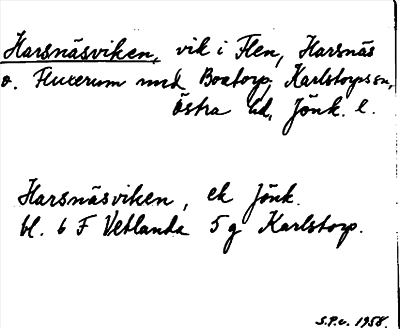 Harsnäsviken, vik i Flen, Harsnäs
o. Fluxerum med Boatorp, Karlstorps sn,
Östra hd, Jönk. l.
Harsnäsviken, ek Jönk.
bl. 6 F Vetlanda 5 g Karlstorp.
S.P.v. 1958.